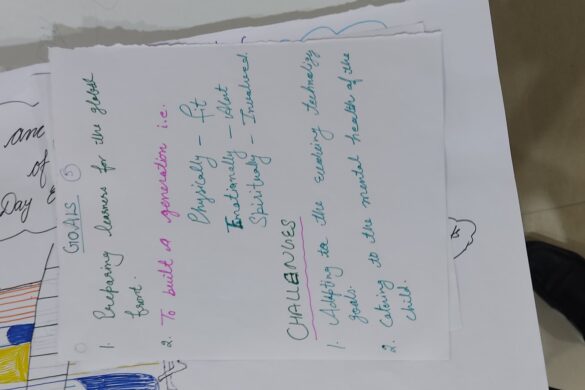 GOALS
1. Preparing learners for the global
front.
2. To built a generation i.e.
Physically - fit
Emotionally - Alert
Spiritually - Involved.
CHALLENGES
1. Adapting to the evolving technology
goals.
2. Catering to the mental health of the
child.
and
of
Day